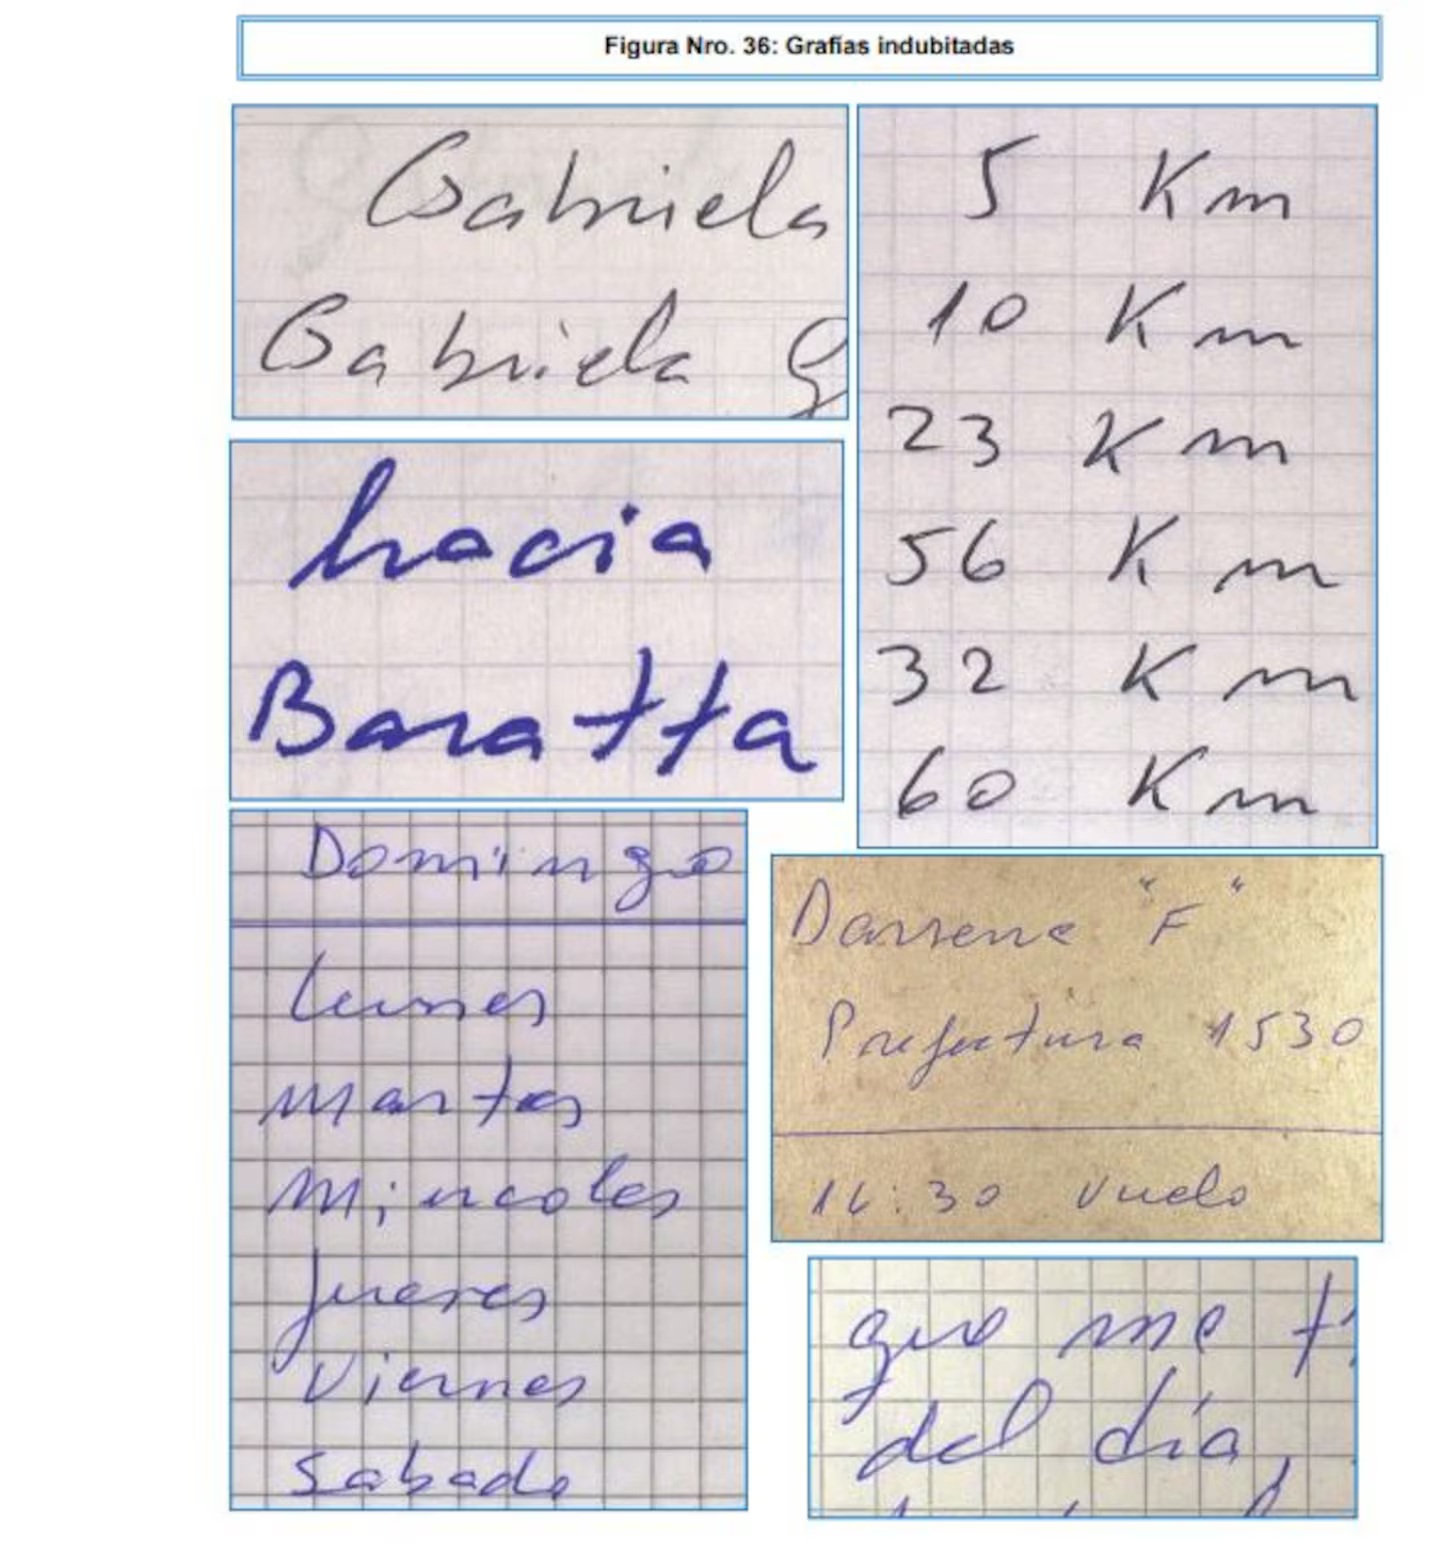 Figura Nro. 36: Grafías indubitadas
Gabriela
Gabriela G
hacia
Baratta
5 Km
10 Km
23 Km
56 Km
32 Km
60 Km
Domingo
lunes
martes
Miercoles
jueves
viernes
sabado
Darsena "F"
Prefectura 1530
16:30 vuelo
que me t
del día,